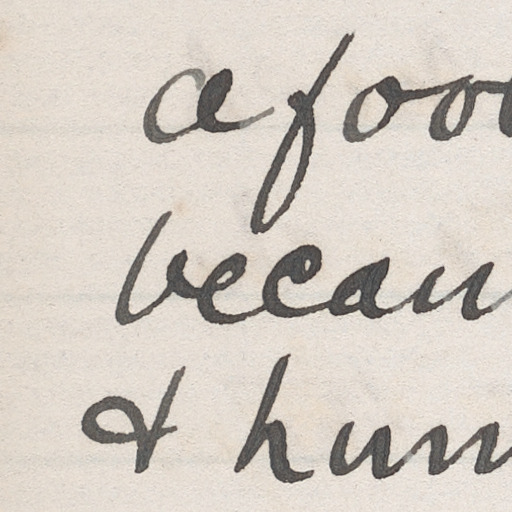 a foo
becau
& hum